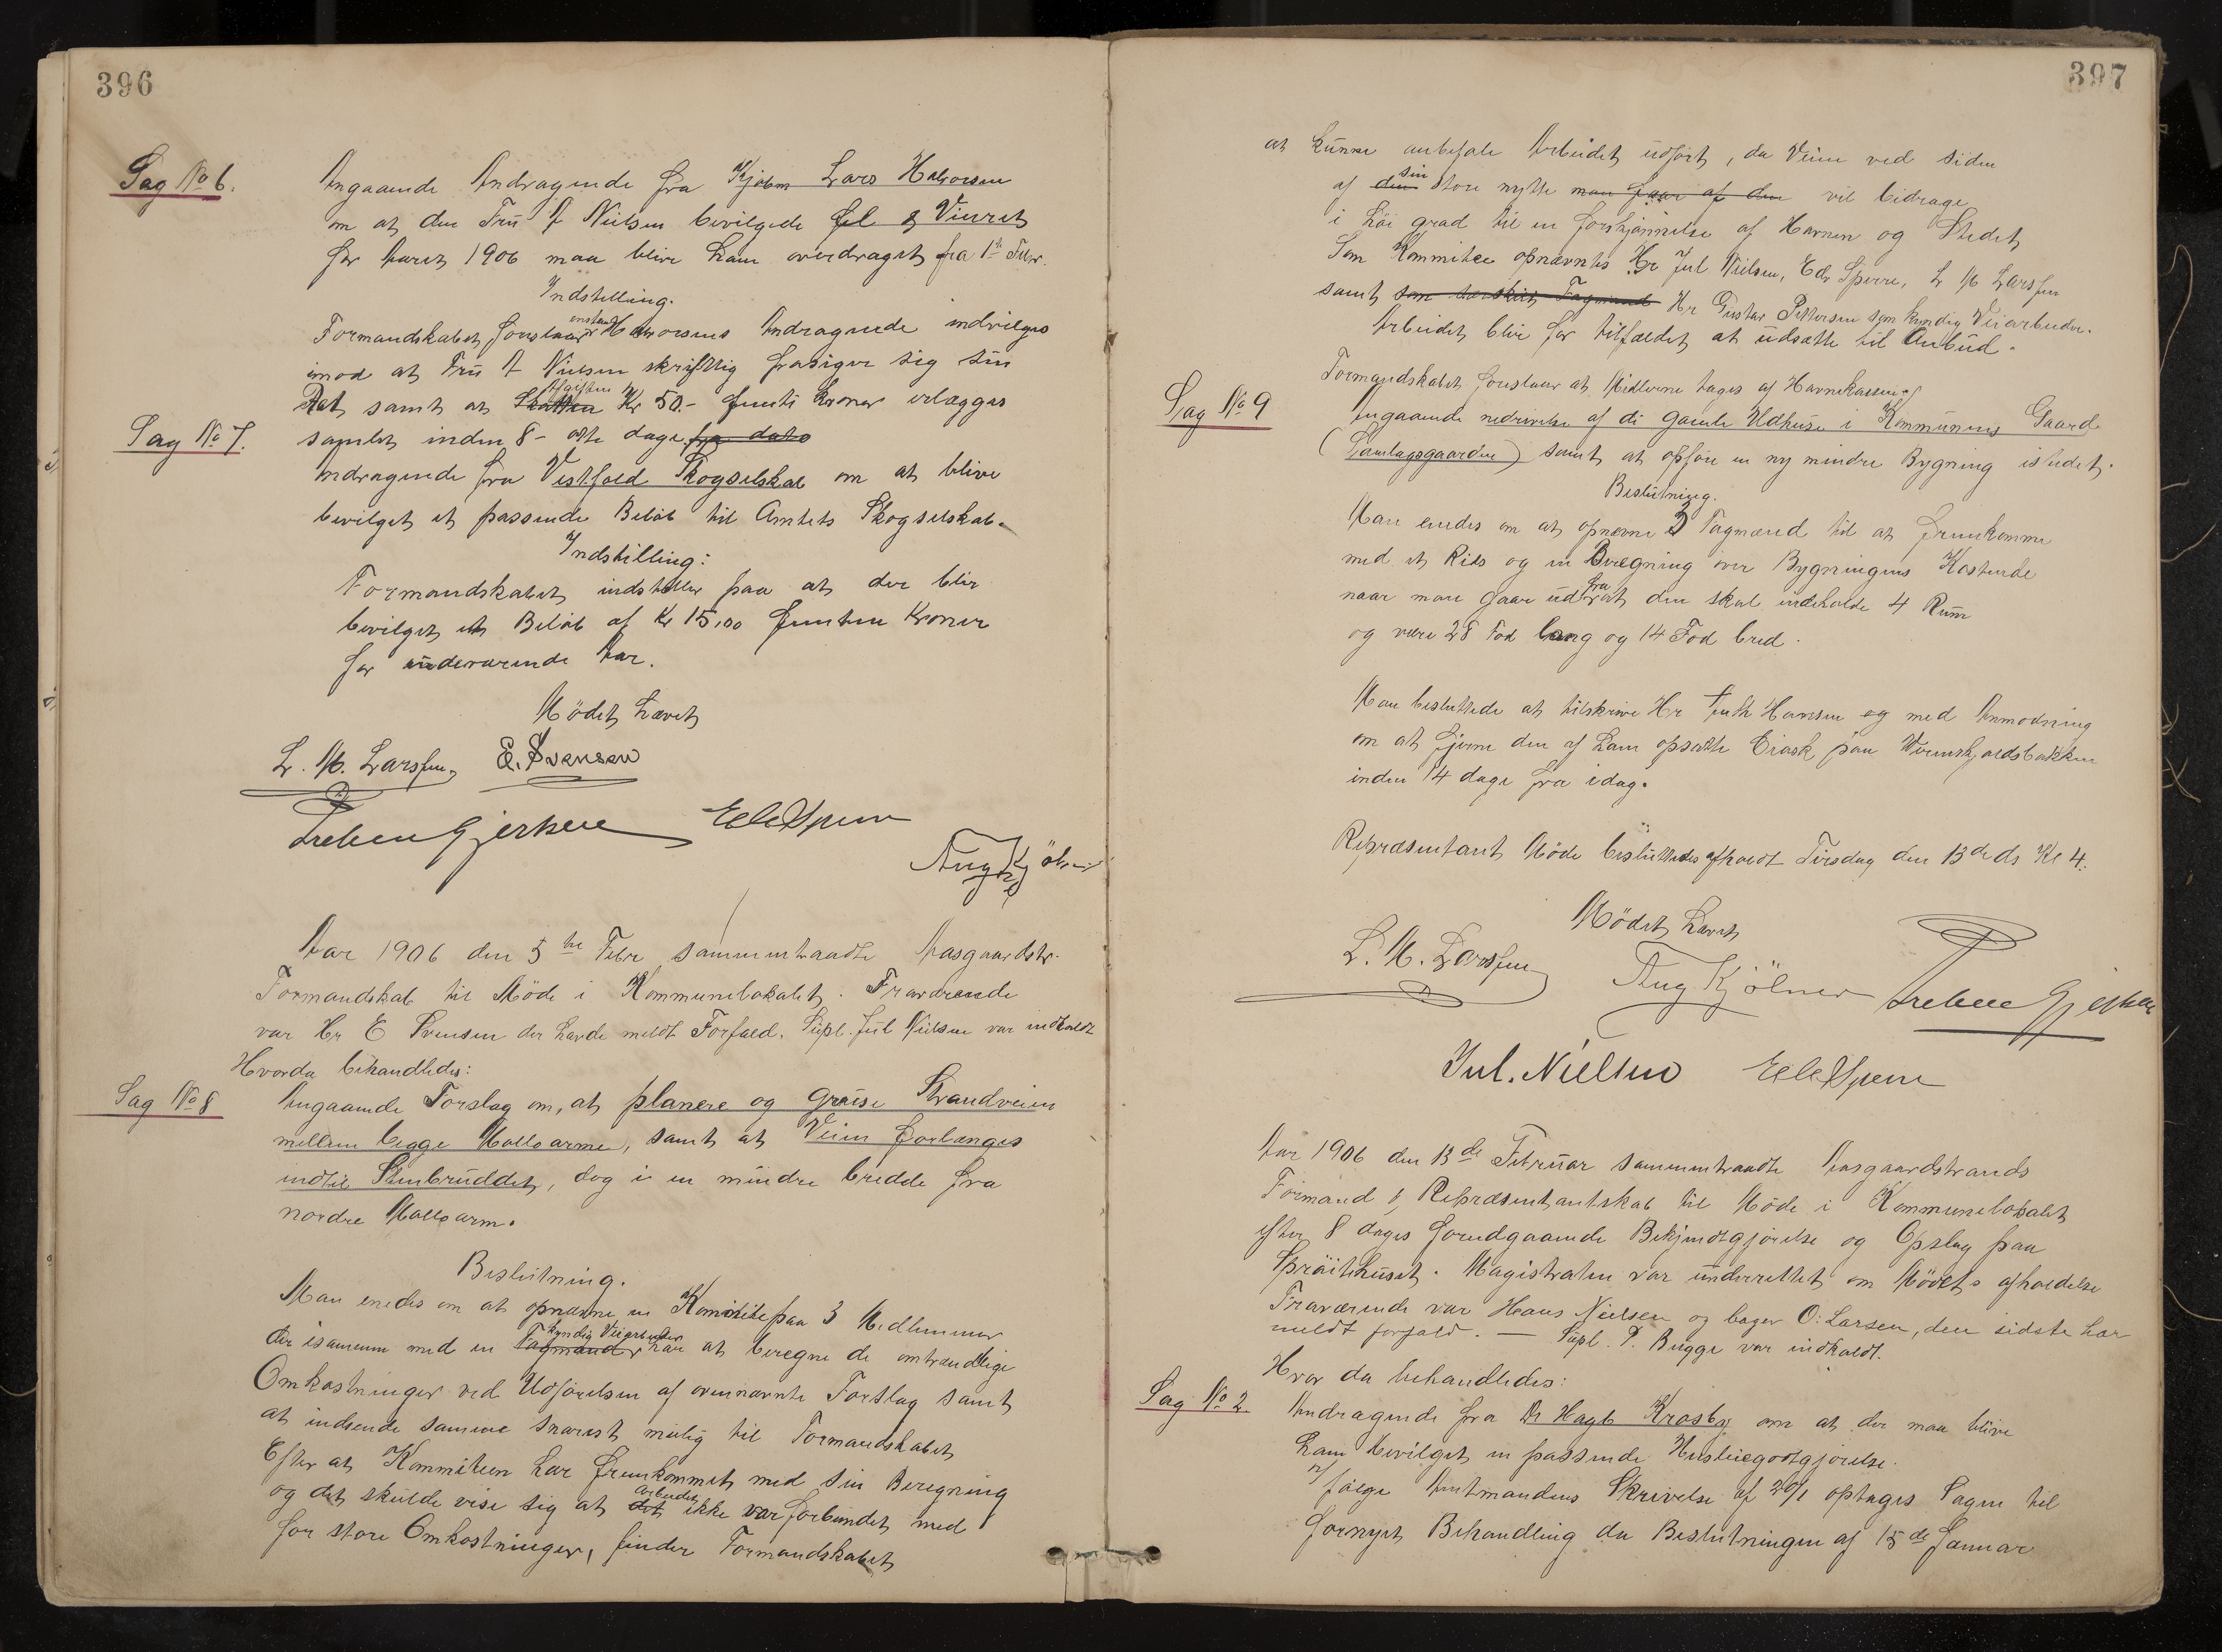 396
Sag No 6.
Angaaende Andragende fra Kjøbm Lars Halvorsen
om at den Fru A Nielsen bevilgede Øl & Vinret
for Aaret 1906 maa blive ham overdraget fra 1ste Febr.
Indstilling.
Formandskabet foreslaar Halvorsens Andragende indvilges
imod at Fru A Nielsen skriftlig frasiger sig sin
Afgiften
Ret samt at Skatten Kr 50.- femti Kroner erlægges
Sag No 7.
samlet inden 8 - otte dage fra dato
Andragende fra Vestfold Skogselskab om at blive
bevilget et passende Beløb til Amtets Skogselskab.
Indstilling:
Formandskabet indstiller paa at der blir
bevilget et Beløb af Kr 15,00 femten Kroner
for indeværende Aar.
Mödet hævet
L. M. Larssen. E. Svensen
Preben Gjersøe
Aug Kjölner
Aar 1906 den 5te Febr sammentraadte Aasgaardstr.
Formandskab til Möde i Kommunelokalet. Fraværende
var Hr E Svensen der havde meldt Forfald. Supl. Jul Nielsen var indkaldt
Hvorda behandledes:
Sag No 8
Angaaende Forslag om, at planere og gruse Strandveien
mellem begge Molloarme, samt at Veien forlænges
indtil Stenbruddet, dog i en mindre bredde fra
nordre Molloarm.
Beslutning.
Man enedes om at opnævne en Komitée paa 3 Medlemmer
kyndig Veiarbeider
der isammen med en Fagmand har at beregne de omtrendtlige
Omkostninger ved Udførelsen af ovennævnte Forslag samt
at indsende samme snarest mulig til Formandskabet
Efter at Kommiteen har fremkommet med sin Beregning
arbeidet
og det skulde vise sig at det ikke var forbundet med
for store Omkostninger, finder Formandskabet
397
at kunne anbefale Arbeidet udført, da Veien ved siden
sin
af den store nytte man faar af den vil bidrage
i høi grad til en forskjønnelse af Havnen og Stedet
Som Kommitee opnævntes Hr Jul Nielsen, Edv Sperre, L M Larssen
samt som Fagmand Hr Gustav Pettersen som kyndig Veiarbeider.
Arbeidet blir for tilfældet at udsætte til Anbud.
Formandskabet foreslaar at Midlerne tages af Havnekassen.
Sag No 9
Angaaende nedrivelse af de gamle Udhuse i Kommunens Gaard
(Samlagsgaarden) samt at opføre en ny mindre Bygning istedet.
Beslutning.
Man enedes om at opnævne 3 Fagmænd til at fremkomme
med et Rids og en Beregning over Bygningens Kostende
fra
naar man gaar ud at den skal indeholde 4 Rum
og være 28 Fod lang og 14 Fod bred.
Man besluttede at tilskrive Hr Anth Hansen og med Anmodning
om at fjerne den af ham opsatte Kiosk paa Wormskjoldsbakken
inden 14 dage fra idag.
Repræsentant Möde besluttedes afholdt Tirsdag den 13de ds Kl 4.
Mödet hævet
L. M. Larssen Aug Kjölner Preben Gjersøe
Jul. Nielsen
Aar 1906 den 13de Februar sammentraadte Aasgaardstrands
Formand & Repræsentantskab til Möde i Kommunelokalet
efter 8 dages forudgaaende Bekjendtgjørelse og Opslag paa
Spröitehuset. Magistraten var underrettet om Mödets afholdelse
Fraværende var Hans Nielsen og bager O: Larsen, den sidste har
meldt forfald. — Supl. P. Bugge var indkaldt.
Hvor da behandledes:
Sag No 2.
Andragende fra Dr Hagb Krosby om at der maa blive
ham bevilget en passende Husleiegodtgjørelse.
Ifølge Amtmandens Skrivelse af 20/1 optages Sagen til
fornyet Behandling da Beslutningen af 15de Januar